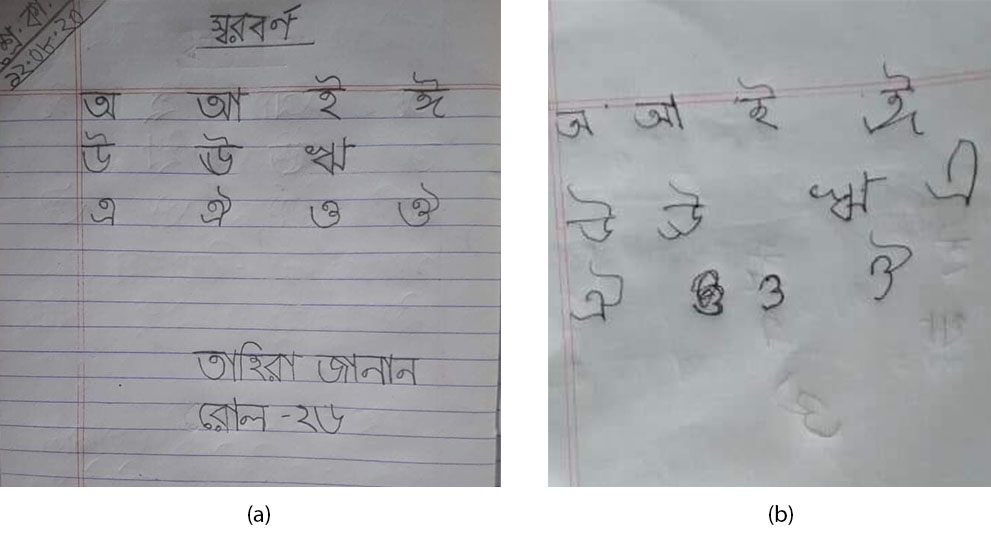 শ্রে. কা.
২২.০৮.২০
স্বরবর্ণ
অ আ ই ঈ
উ ঊ ঋ
এ ঐ ও ঔ
তাহিরা জানান
রোল -২৬
(a)
অ আ ই ঈ
উ ঊ ঋ এ
ঐ ও ঔ
(b)